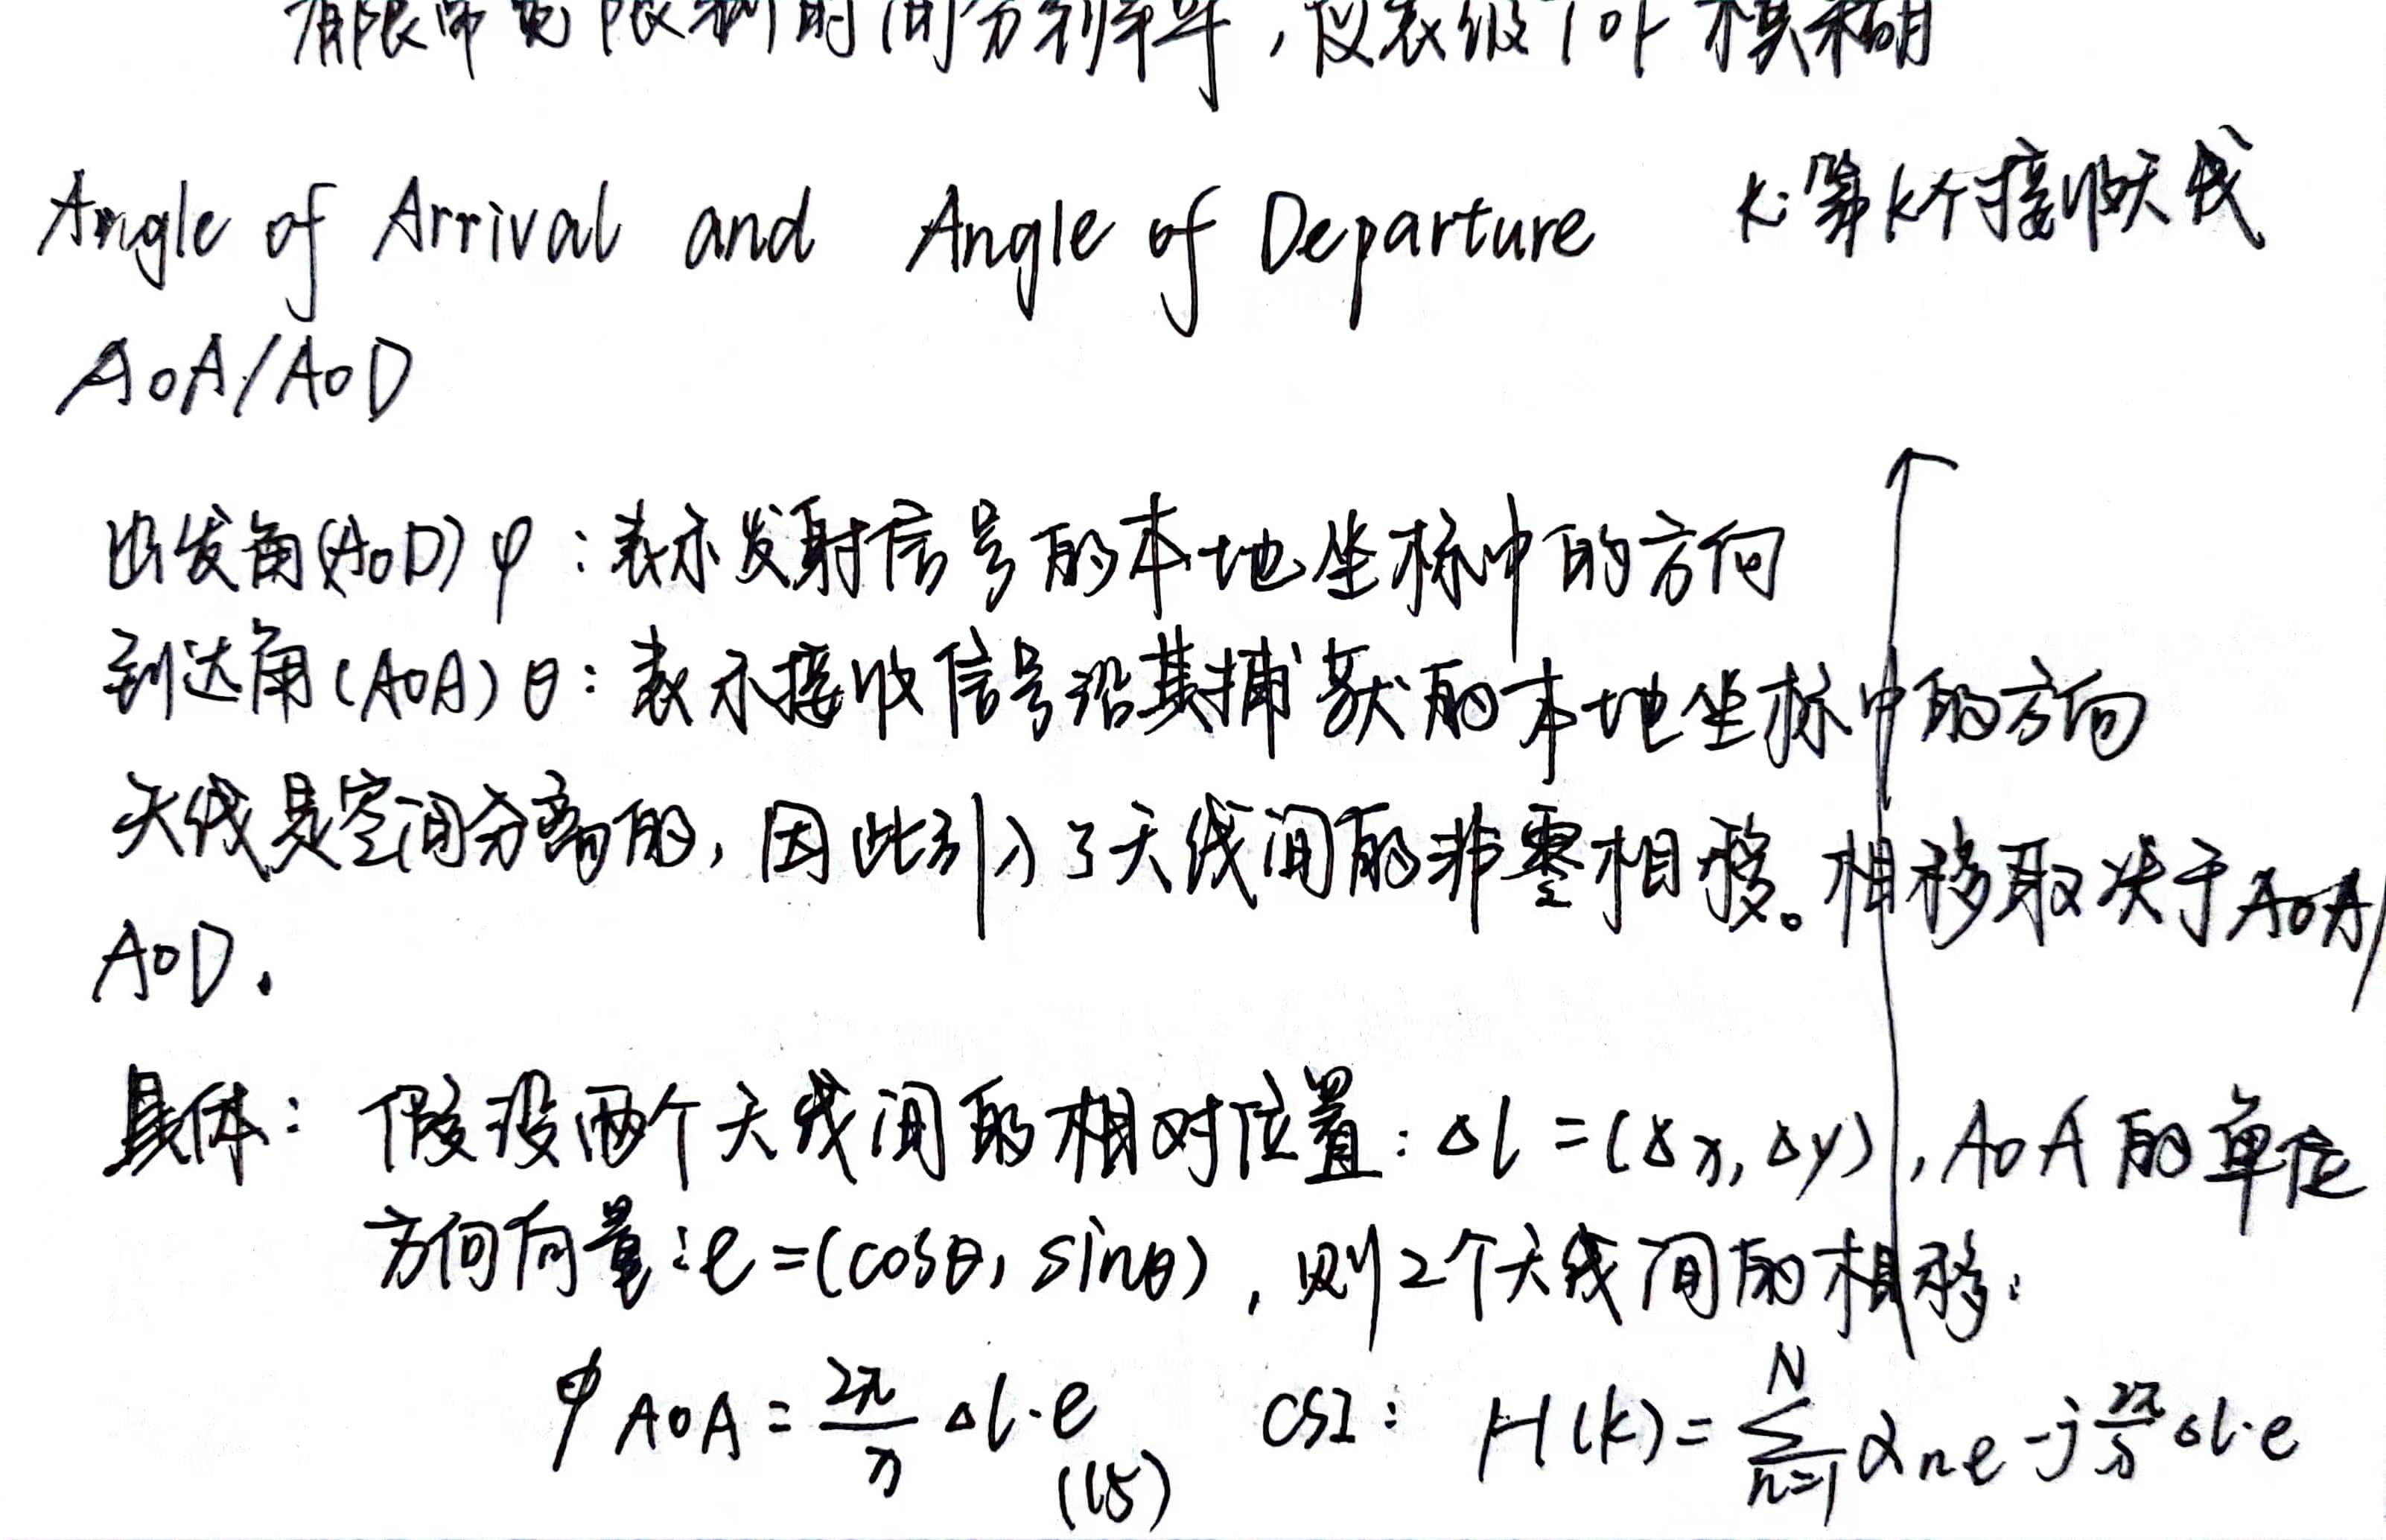 有限带宽限制时间分辨率，仪表级ToF模糊
Angle of Arrival and Angle of Departure k:第k个接收天线
AoA/AoD
出发角(AoD)φ：表示发射信号的本地坐标中的方向
到达角(AoA)θ：表示接收信号沿其捕获的本地坐标中的方向
天线是空间分离的，因此引入了天线间的非零相移。相移取决于AoA/
AoD.
具体：假设两个天线间的相对位置：Δl=(Δx,Δy),AoA的单位
方向向量：e=(cosθ, sinθ)，则2个天线间的相移：
φ AoA = 2π/λ Δl·e CSI： H(k)= Σ_{n=1}^{N} α_n e^{-j 2π/λ Δl·e}
(15)